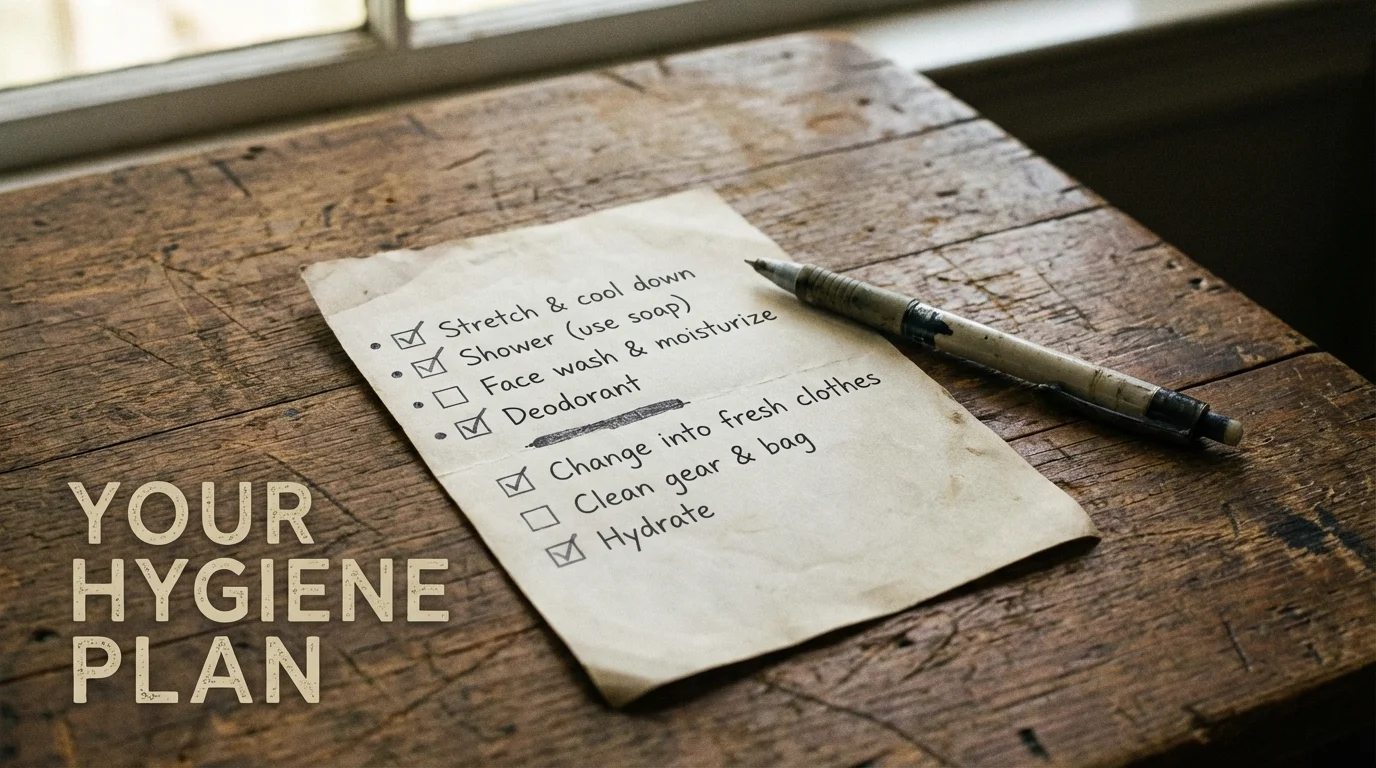 Stretch & cool down
Shower (use soap)
Face wash & moisturize
Deodorant
Change into fresh clothes
Clean gear & bag
Hydrate
YOUR
HYGIENE
PLAN